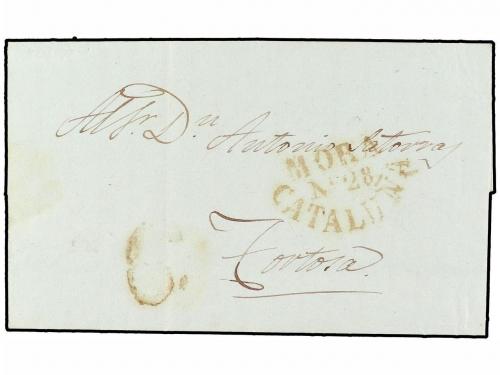 Al Sr. Dn. Antonio Satorras
MORA
N. 28
CATALUÑA
6.
Tortosa.